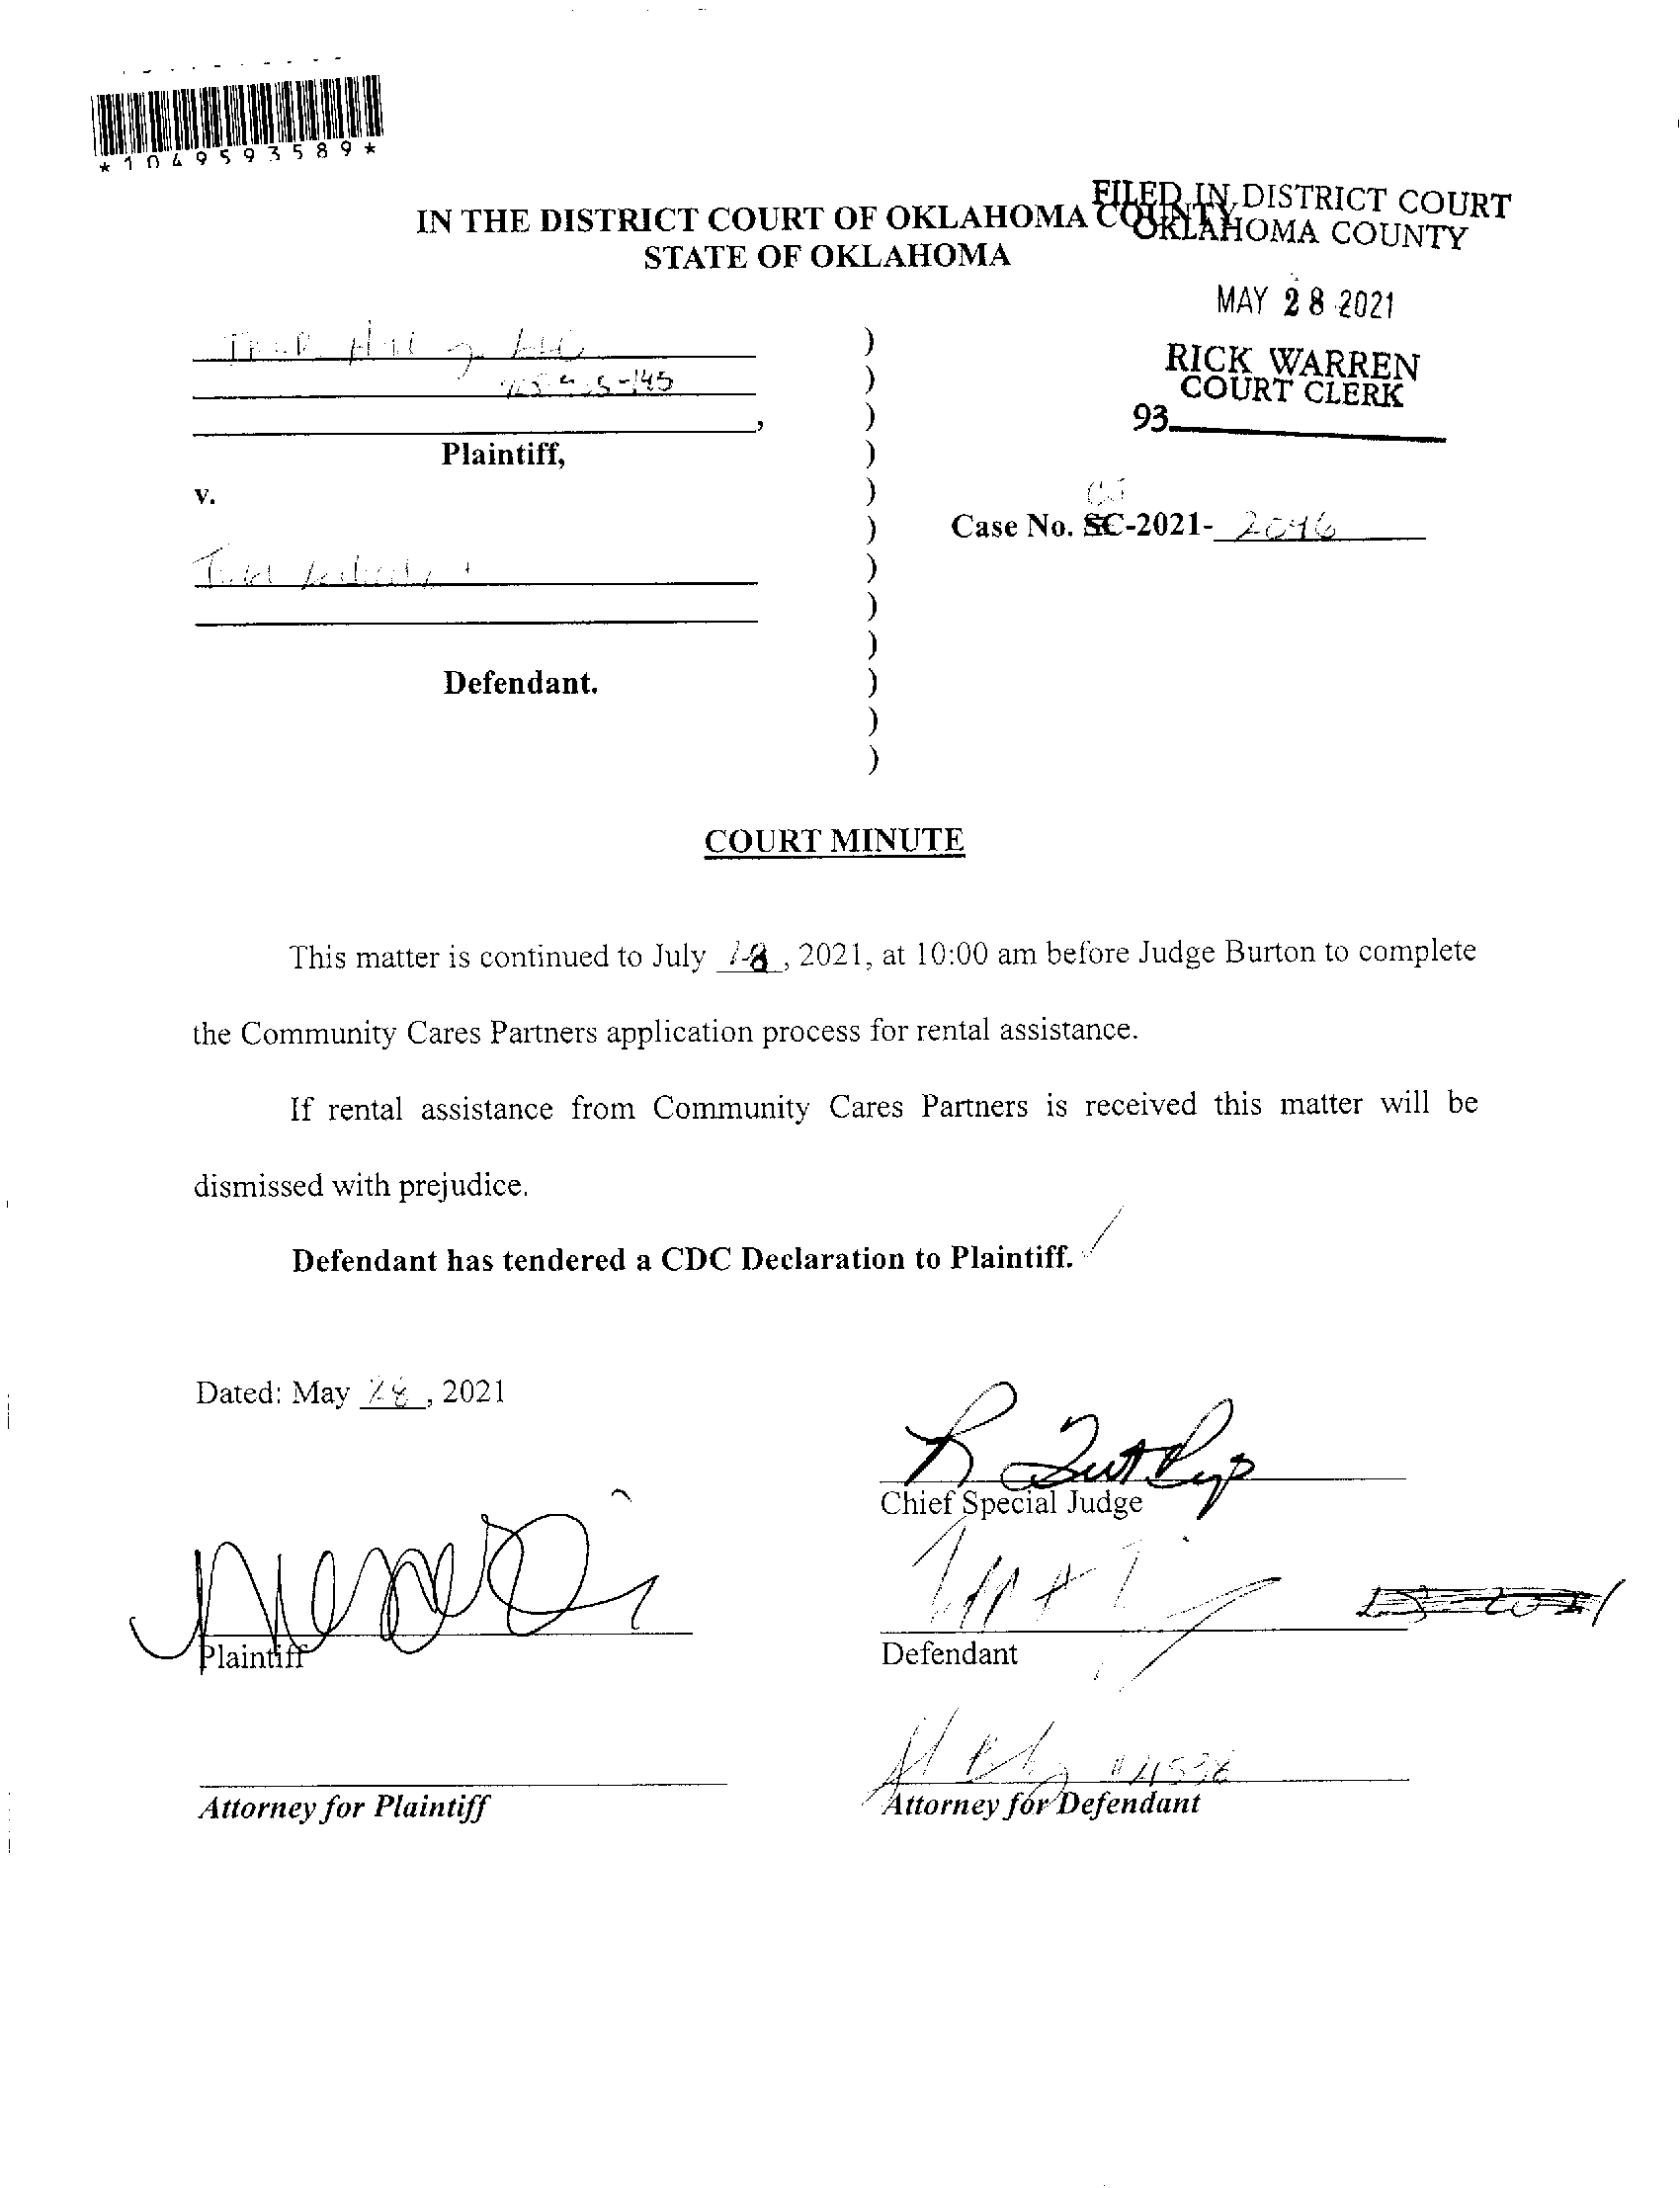 *1049593589*
FILED IN DISTRICT COURT
OKLAHOMA COUNTY
IN THE DISTRICT COURT OF OKLAHOMA COUNTY
STATE OF OKLAHOMA
MAY 28 2021
RICK WARREN
COURT CLERK
93
LLC
-145
,
Plaintiff,
v.
Case No. SC-2021- 2046
Defendant.
COURT MINUTE
This matter is continued to July , 2021, at 10:00 am before Judge Burton to complete
the Community Cares Partners application process for rental assistance.
If rental assistance from Community Cares Partners is received this matter will be
dismissed with prejudice.
Defendant has tendered a CDC Declaration to Plaintiff. ✓
Dated: May 28, 2021
Chief Special Judge
Plaintiff
Defendant
Attorney for Plaintiff
Attorney for Defendant